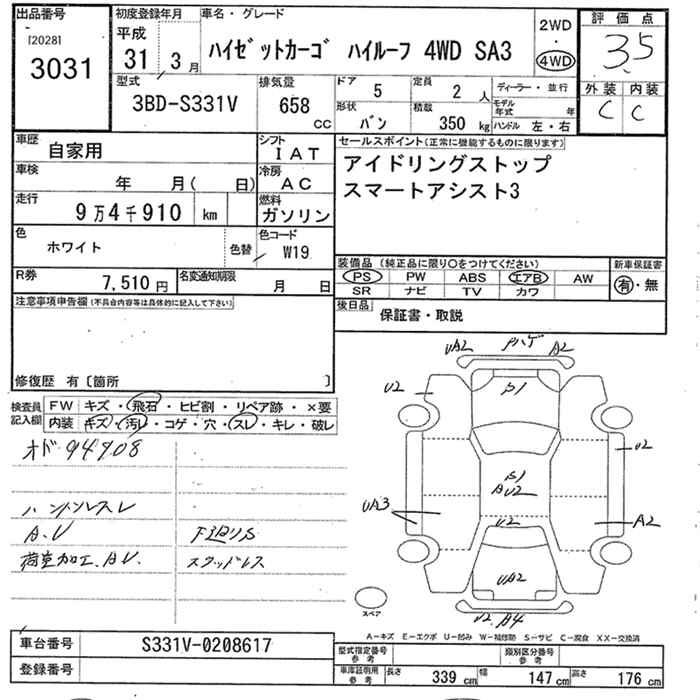 出品番号
[2028]
3031
初度登録年月
平成
31年 3月
車名・グレード
ハイゼットカーゴ ハイルーフ 4WD SA3
2WD
・
4WD
評価点
3.5
外装 内装
C C
型式
3BD-S331V
排気量
658
CC
ドア
5
定員
2人
形状
バン
積載
350 kg
ディーラー・並行
モデル年式 年
ハンドル 左・右
車歴
自家用
シフト
IAT
車検
年 月( 日)
冷房
AC
走行
9万4千910 km
燃料
ガソリン
色
ホワイト
色替
色コード
W19
R券
7,510円
名変通知期限
月 日
セールスポイント(正常に機能するものに限ります)
アイドリングストップ
スマートアシスト3
装備品(純正品に限り○をつけてください)
PS PW ABS エアB AW
SR ナビ TV カワ
新車保証書
有・無
後日品
保証書・取説
注意事項申告欄(不具合内容等は具体的に記入して下さい)
修復歴 有〔箇所 〕
検査員記入欄
FW キズ・飛石・ヒビ割・リペア跡・×要
内装 キズ・汚レ・コゲ・穴・スレ・キレ・破レ
オド 94908
ハンドルスレ
A.U
荷室加工.AU.
下廻りS
スタッドレス
UA2 ハゲ A2
U2
S1
U2
S1
A U2
UA3
U2
A2
UA2
U2 A4
スペア
A-キズ E-エクボ U-凹み W-補修跡 S-サビ C-腐食 XX-交換済
車台番号
S331V-0208617
登録番号
型式指定番号 参考
類別区分番号 参考
車庫証明用 参考
長さ 339 cm 幅 147 cm 高さ 176 cm